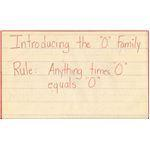 Introducing the "O" Family
Rule: Anything times "O"
equals "O"